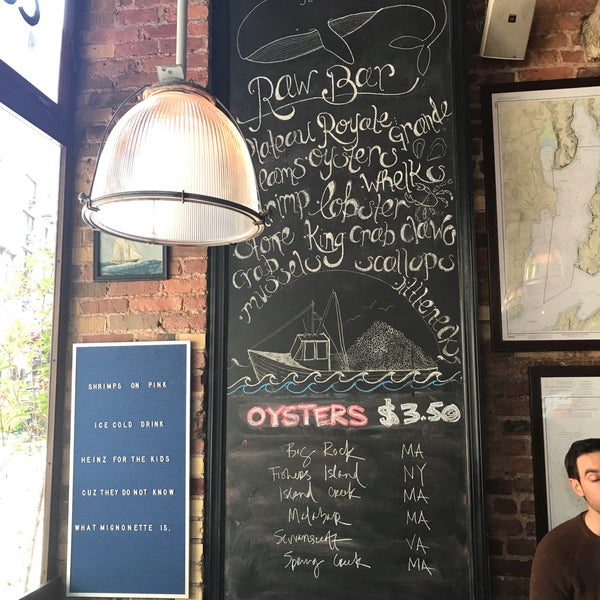 Raw Bar
Plateau Royale Grande
Clams oysters
whelks
shrimp lobster
Stone King crab claws
crab
mussels scallops
OYSTERS $3.50
Big Rock MA
Fishers Island NY
Island Creek MA
MA
VA
MA
SHRIMPS ON PINK
ICE COLD DRINK
HEINZ FOR THE KIDS
CUZ THEY DO NOT KNOW
WHAT MIGNONETTE IS.